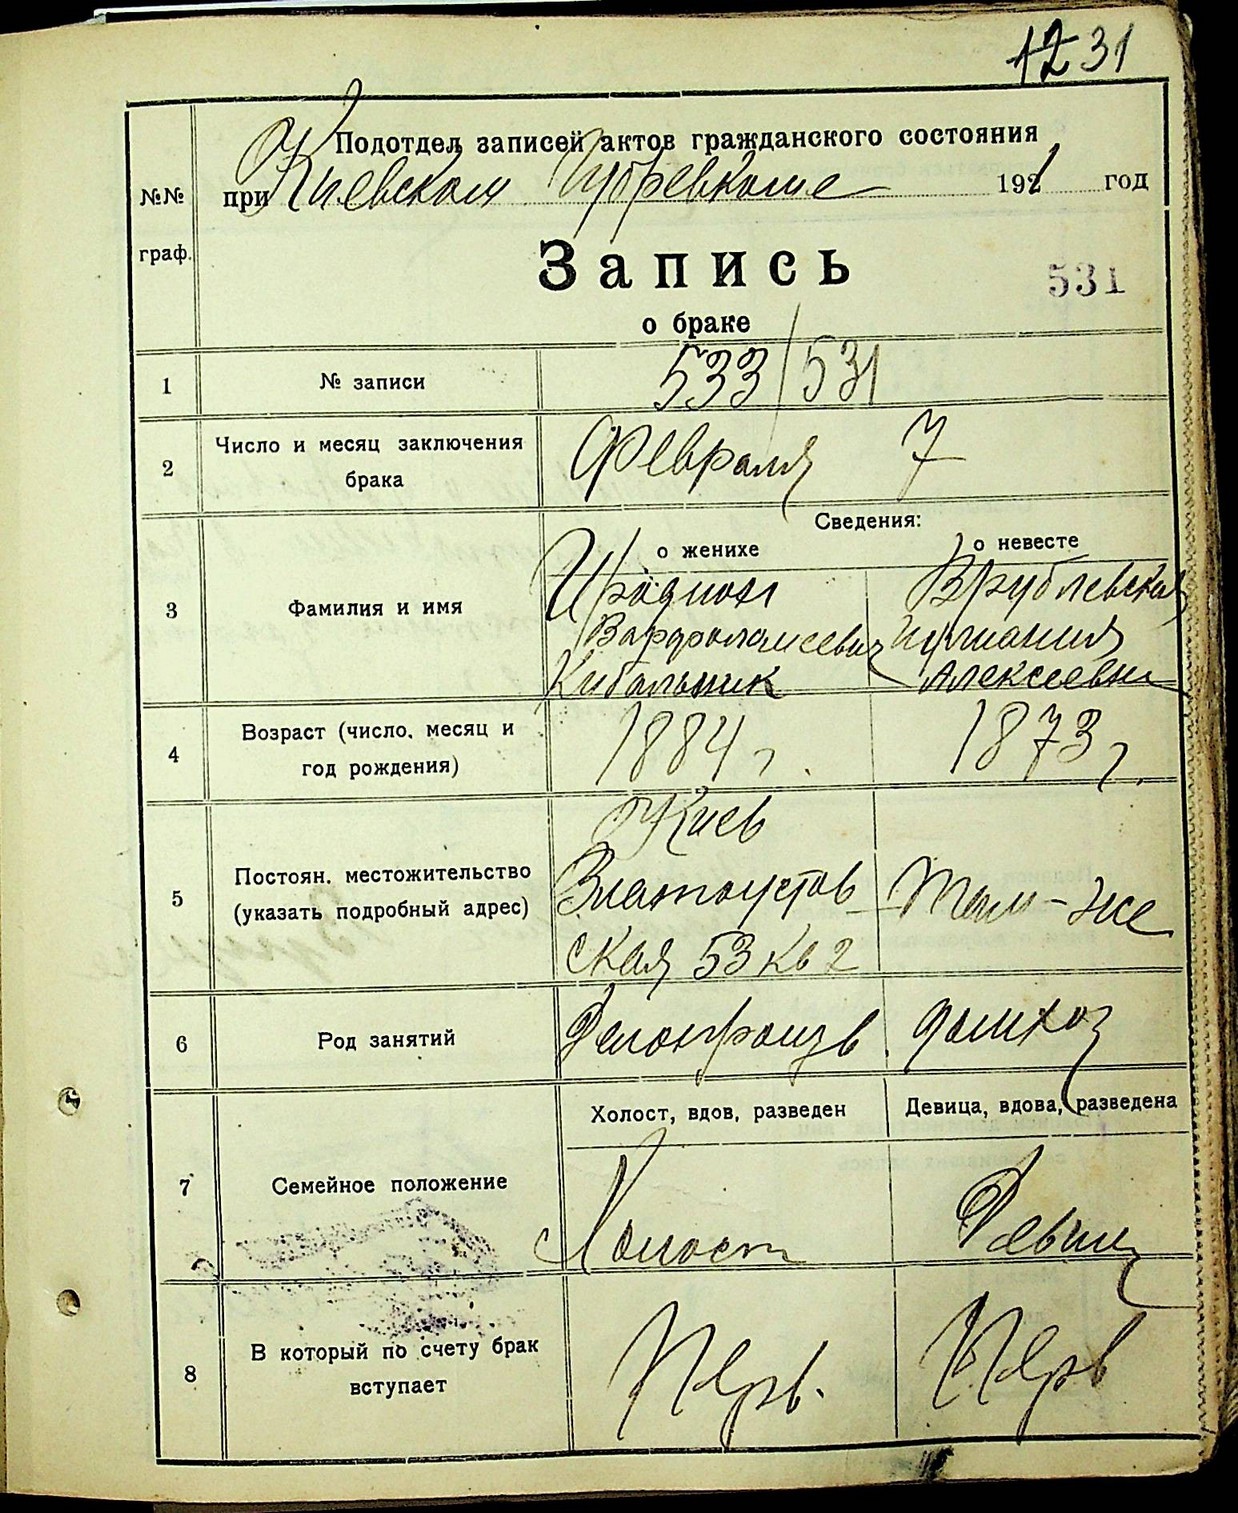 12 31
Подотдел записей актов гражданского состояния
при Киевском Губревкоме 1921 год
№№
граф.
Запись
531
о браке
1 № записи 533/531
2 Число и месяц заключения
брака
Февраля 7
Сведения:
о женихе о невесте
3 Фамилия и имя
Иродион Врублевская
Варфоломеевич
Кибальник Алексеевна
4 Возраст (число, месяц и
год рождения)
1884 г. 1873 г.
5 Постоян. местожительство
(указать подробный адрес)
Киев
Златоустов Там-же
ская 53 кв 2
6 Род занятий Делопроизв. домхоз
Холост, вдов, разведен Девица, вдова, разведена
7 Семейное положение
Холост Девиц
8 В который по счету брак
вступает
Перв. Перв